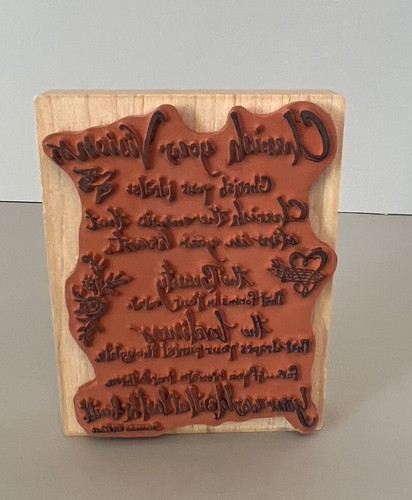 Cherish your Visions
Cherish your ideals
Cherish the music that
stirs in your heart
the Beauty
that forms in your mind
the loveliness
that drapes your purest thoughts
For if you remain true to them
Your world will at last be built